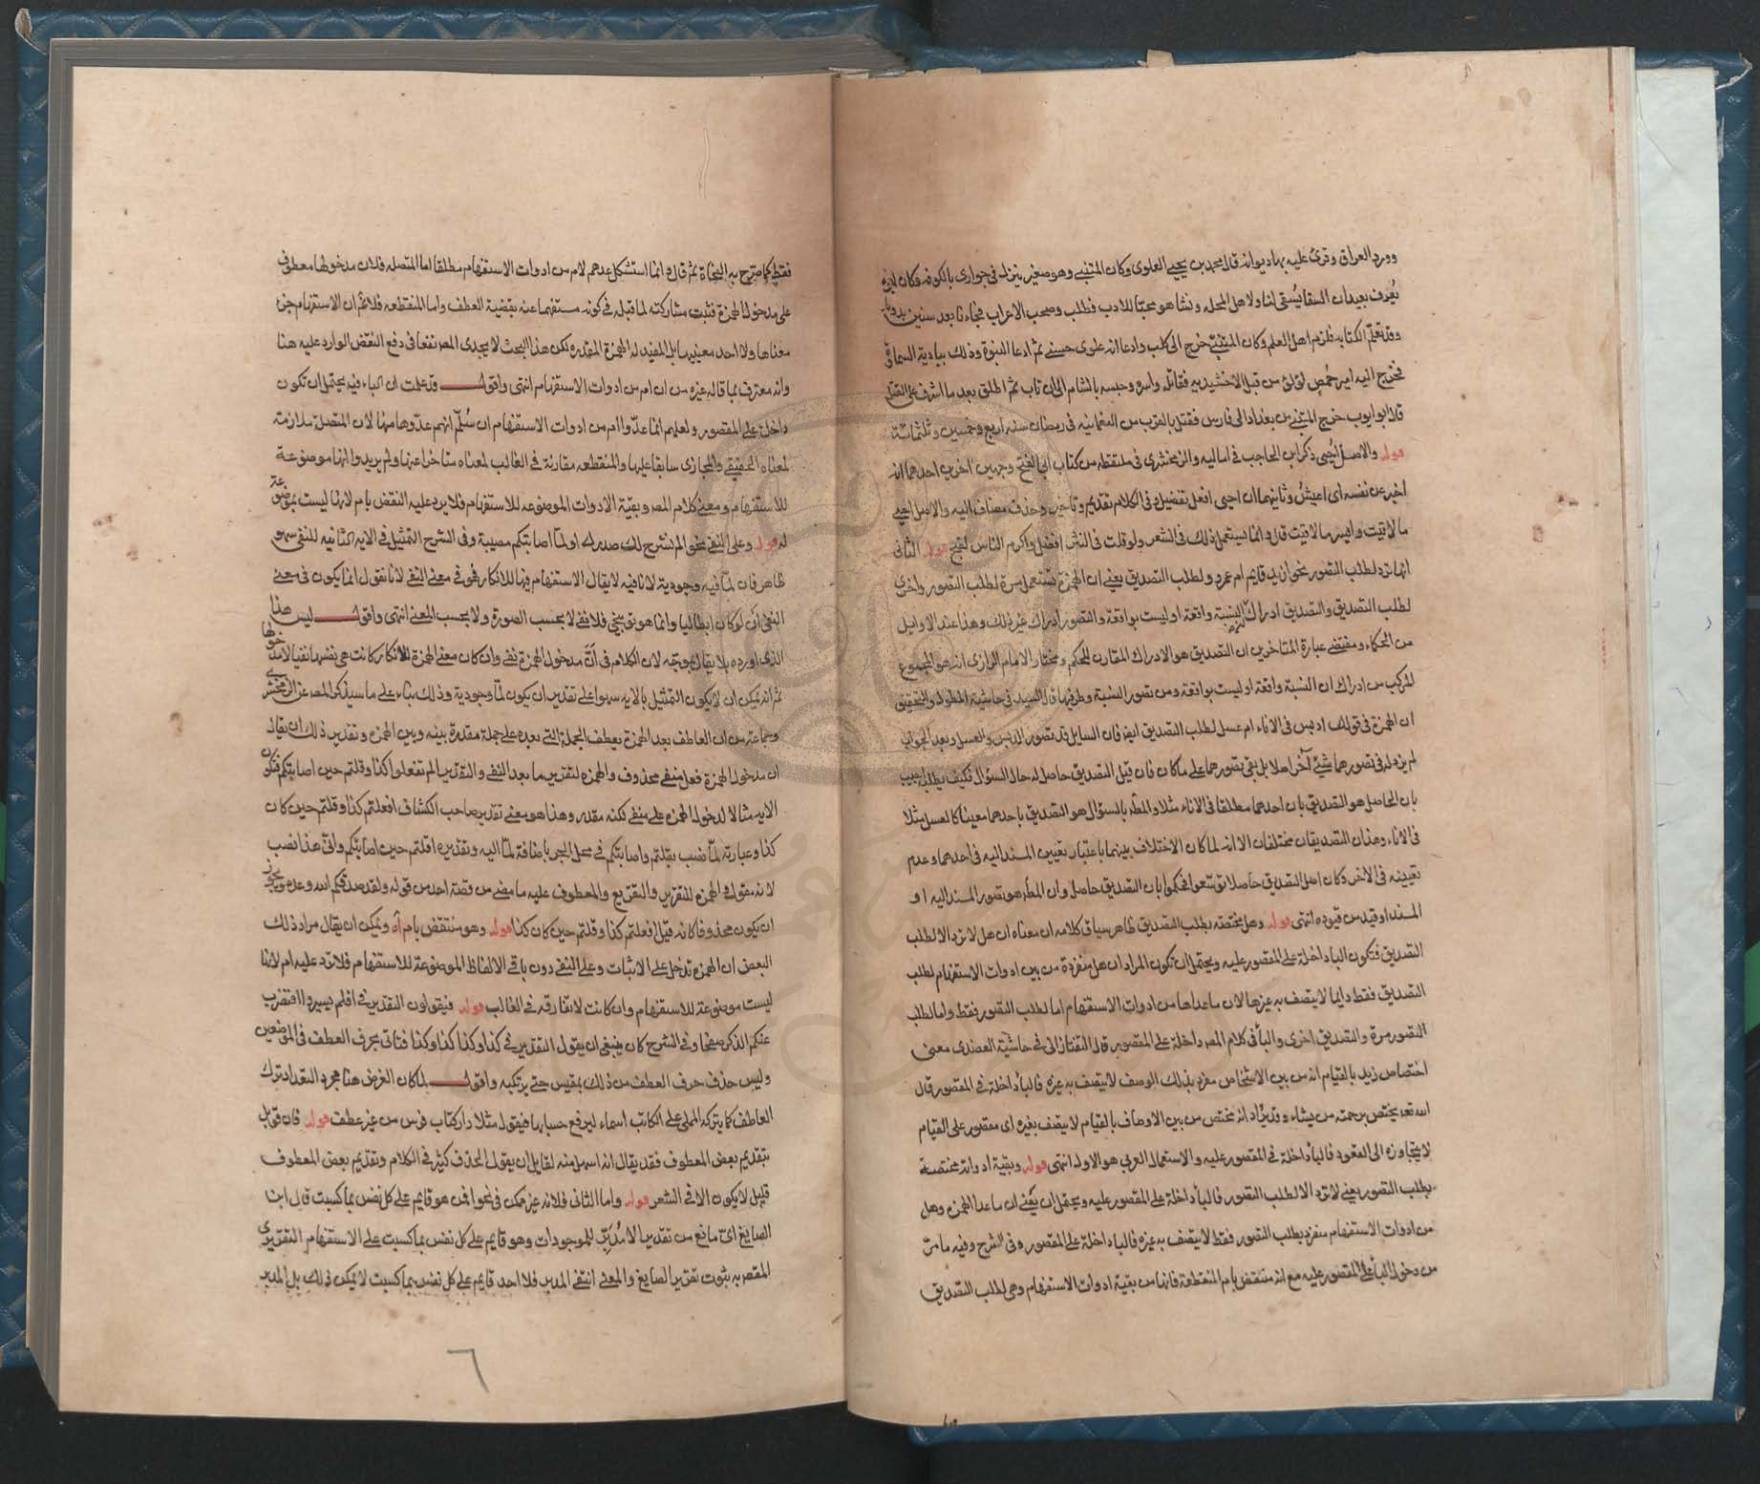 وورد العراق وقرئ عليه بها ديوانه قال محمد بن يحيى العلوي وكان المتنبي وهو صغير ينزل في جواري بالكوفة وكان ابوه
يُعرف بعيدان السقا يُستقى لنا ولاهل المحلة ونشأ هو محبّا للادب فطلب وصحب الاعراب فجاءنا بعد سنين بدويا
وقد تعلم الكتابة فلزم اهل العلم وكان المتنبي خرج الى كلب وادعا انه علوي حسني ثم ادعا النبوة وذلك ببادية السماوة
فخرج اليه امير حمص لؤلؤ من قبل الاخشيدية فقاتله واسره وحبسه بالشام الى ان تاب ثم اطلق بعد ما اشرف على القتل
قال ابو ايوب خرج المتنبي من بغداد الى فارس فقتل بالقرب من النعمانية في رمضان سنة اربع وخمسين وثلثمائة
قوله والاصل أيحيى ذكر ابن الحاجب في اماليه والزمخشري في ملتقطه من كتاب ابي الفتح وجهين اخرين احدهما انه
اخبر عن نفسه اي اعيش وثانيهما ان احيى افعل تفضيل في الكلام تقديم وتاخير وحذف مضاف اليه والاصل احيى
ما لاقيت وايسر ما لاقيت قال وانما يستعمل ذلك في الشعر ولو قلت في النثر افضل واكرم الناس لقبح قوله الثاني
انها ترد لطلب التصور نحو ازيد قايم ام عمرو ولطلب التصديق يعني ان الهمزة تستعمل مرة لطلب التصور واخرى
لطلب التصديق والتصديق ادراك ان النسبة واقعة او ليست بواقعة والتصور ادراك غير ذلك وهذا عند الاوايل
من الحكماء ومقتضى عبارة المتاخرين ان التصديق هو الادراك المقارن للحكم ومختار الامام الرازي انه هو المجموع
المركب من ادراك ان النسبة واقعة او ليست بواقعة ومن تصور النسبة وطرفيها قال السيد في حاشية المطول والتحقيق
ان الهمزة في قولك ادبس في الاناء ام عسل لطلب التصديق ايضا فان السايل قد تصور الدبس والعسل وبعد الجواب
لم يزد له في تصورهما شيئ آخر اصلا بل بقي تصورهما على ما كان فان قيل التصديق حاصل له حال السؤال فكيف يطلبه اجيب
بان الحاصل هو التصديق بان احدهما مطلقا في الاناء مثلا والمطلوب بالسؤال هو التصديق باحدهما معينا كالعسل مثلا
في الاناء وهذان التصديقان مختلفان الا انه لما كان الاختلاف بينهما باعتبار تعيين المسند اليه في احدهما وعدم
تعيينه في الاخر وكان اصل التصديق حاصلا توسعوا فحكموا بان التصديق حاصل وان المطلوب هو تصور المسند اليه او
المسند او قيد من قيوده انتهى قوله وهل مختصة بطلب التصديق ظاهر سياق كلامه ان معناه ان هل لا ترد الا لطلب
التصديق فتكون الباء داخلة على المقصور عليه ويحتمل ان تكون المراد ان هل منفردة من بين ادوات الاستفهام لطلب
التصديق فقط دايما لا يتصف به غيرها لان ما عداها من ادوات الاستفهام اما لطلب التصور فقط واما لطلب
التصور مرة والتصديق اخرى والباء في كلام المصر داخلة على المقصور قال التفتازاني في حاشية العضدي معنى
اختصاص زيد بالقيام انه من بين الاشخاص مفرد بذلك الوصف لا يتصف به غيره فالباء داخلة في المقصور قال
الله تعه يختص برحمته من يشاء وقد يراد انه مختص من بين الاوصاف بالقيام لا يتصف بغيره اي مقصور على القيام
لا يتجاوزه الى القعود فالباء داخلة في المقصور عليه والاستعمال العربي هو الاول انتهى قوله وبقية ادواته مختصة
بطلب التصور يعني لا ترد الا لطلب التصور فالباء داخلة على المقصور عليه ويحتمل ان يعني ان ما عدا الهمزة وهل
من ادوات الاستفهام منفرد بطلب التصور فقط لا يتصف به غيره فالباء داخلة على المقصور وفي الشرح وفيه ما مرّ
من دخول الباء على المقصور عليه مع انه منتقض بام المنقطعة فانها من بقية ادوات الاستفهام وهي لطلب التصديق
فقط كما صرح به النحاة ثم قال وانما استشكل عدهم لام من ادوات الاستفهام مطلقا اما المتصلة فلان مدخولها معطوف
على مدخول الهمزة فثبت مشاركته لما قبله في كونه مستفهما عنه بقضية العطف واما المنقطعة فلانم ان الاستفهام جزء
معناها ولا احد معنييها بل المفيد له الهمزة المقدرة لكن هذا البحث لا يجدي المصر نفعا في دفع النقض الوارد عليه هنا
وانه معترف بما قاله غيره من ان ام من ادوات الاستفهام انتهى واقول قد علمت ان الباء فيه يحتمل ان تكون
داخلة على المقصور ولعلهم انما عدّوا ام من ادوات الاستفهام ان سُلّم انهم عدّوها منها لان المتصلة ملازمة
لمعناه الحقيقي والمجازي سابقا عليها والمنقطعة مقارنة في الغالب لمعناه متاخرا عنها ولم يريدوا انها موضوعة
للاستفهام ومعنى كلام المصر وبقية الادوات الموضوعة للاستفهام فلا يرد عليه النقض بام لانها ليست بموضوعة
له قوله وعلى النفي نحو الم نشرح لك صدرك او لما اصابتكم مصيبة وفي الشرح التمثيل في الاية الثانية للنفي سهو
ظاهر فان لما فيه وجودية لا نافية لا يقال الاستفهام فيها للانكار فهو في معنى النفي لانا نقول انما يكون في معنى
النفي ان لو كان ابطاليا وانما هو توبيخي فلا نفي لا بحسب الصورة ولا بحسب المعنى انتهى واقول ليس هذا
الذي اورده بلا يقال بموجّه لان الكلام في انّ مدخول الهمزة نفي وان كان معنى الهمزة للانكار كانت هي نفسها نفيا لا مدخولها
ثم انه يمكن ان لا يكون التمثيل بالاية سهوا على تقدير ان يكون لما وجودية وذلك بناء على ما سيذكره المصر عن الزمخشري
وجماعة من ان العاطف بعد الهمزة يعطف الجملة التي بعده على جملة مقدرة بينه وبين الهمزة وتقدير ذلك ان يقال
ان مدخول الهمزة فعل منفي محذوف والهمزة لتقرير ما بعد النفي والتقدير الم تفعلوا كذا وقلتم حين اصابتكم فتكون
الاية مثالا لدخول الهمزة على منفي لكنه مقدر وهذا هو معنى تقدير صاحب الكشاف افعلتم كذا وقلتم حين كان
كذا وعبارته لما نصب بقلتم واصابتكم في محل الجر باضافة لما اليه وتقديره اقلتم حين اصابتكم وانى هذا نصب
لانه مقول والهمزة للتقرير والتقريع والمعطوف عليه ما مضى من قصة احد من قوله ولقد صدقكم الله وعده ويجوز
ان يكون محذوفا كانه قيل افعلتم كذا وقلتم حين كان كذا قوله وهو منتقض بام آه ويمكن ان يقال مراد ذلك
البعض ان الهمزة تدخل على الاثبات وعلى النفي دون باقي الالفاظ الموضوعة للاستفهام فلا ترد عليه ام لانها
ليست موضوعة للاستفهام وان كانت لا تفارقه في الغالب قوله فيقولون التقدير في افلم يسيروا افنضرب
عنكم الذكر صفحا وفي الشرح كان ينبغي ان يقول التقدير في كذا وكذا كذا وكذا فتاتي بحرف العطف في الموضعين
وليس حذف حرف العطف من ذلك بمقيس حتى يرتكبه واقول لما كان الغرض هنا مجرد التعداد ترك
العاطف كما يتركه المملي على الكاتب اسماء ليرفع حسابها فيقول مثلا دار كتاب فرس من غير عطف قوله فان قوبل
بتقديم بعض المعطوف فقد يقال انه اسهل منه لقايل ان يقول الحذف كثير في الكلام وتقديم بعض المعطوف
قليل لا يكون الا في الشعر قوله واما الثاني فلانه غير ممكن في نحو افمن هو قايم على كل نفس بما كسبت قال ابن
الصايغ ايّ مانع من تقدير الا مُدَبِّر للموجودات وهو قايم على كل نفس بما كسبت على الاستفهام التقريري
المقصر به ثبوت تقرير الصايغ والمعنى انتفى المدبر فلا احد قايم على كل نفس بما كسبت لا يمكن ذلك بل المدبر
٦